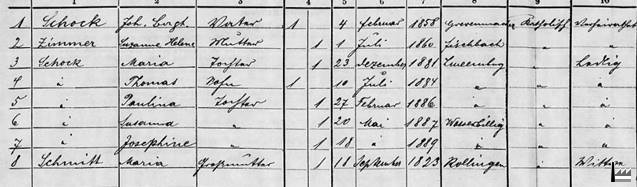 1 2 3 4 5 6 7 8 9 10
1 Schock Joh. Vater 1 4 Februar 1858 Grevenmacher Katholisch Verheirathet
2 Zimmer Susanna Helene Mutter 1 1 Juli 1860 Fischbach " "
3 Schock Maria Tochter 1 23 Dezember 1881 Luxemburg " Ledig
4 i Thomas Sohn 1 10 Juli 1884 " " "
5 i Paulina Tochter 1 27 Februar 1886 i " "
6 i Susanna " 1 20 Mai 1887 Wasserbillig " "
7 i Josephine " 1 18 " 1889 i " "
8 Schmitt Maria Großmutter 1 18 September 1823 Rollingen " Wittwe